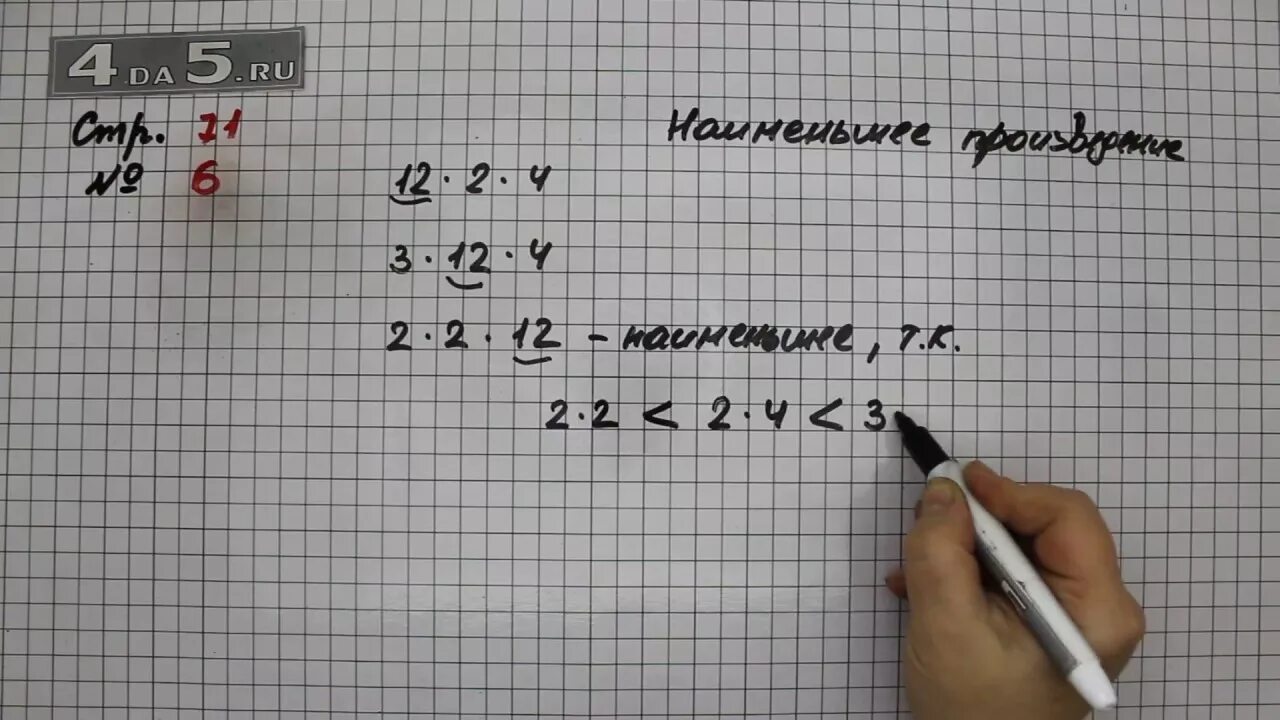 4DA5.RU
Стр. 71
№ 6
Наименьшее произведение
12 · 2 · 4
3 · 12 · 4
2 · 2 · 12 – наименьшее, т.к.
2 · 2 < 2 · 4 < 3